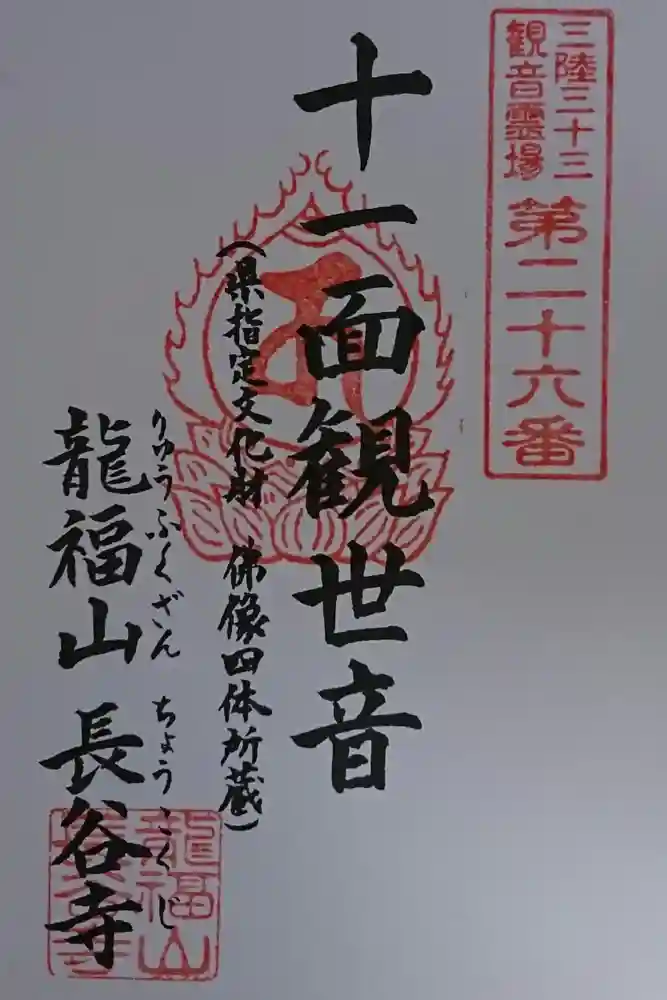 三陸三十三
観音霊場
第二十六番
十一面観世音
(県指定文化財 佛像四体所蔵)
りゅうふくざん ちょうこくじ
龍福山 長谷寺
龍福山
長谷寺